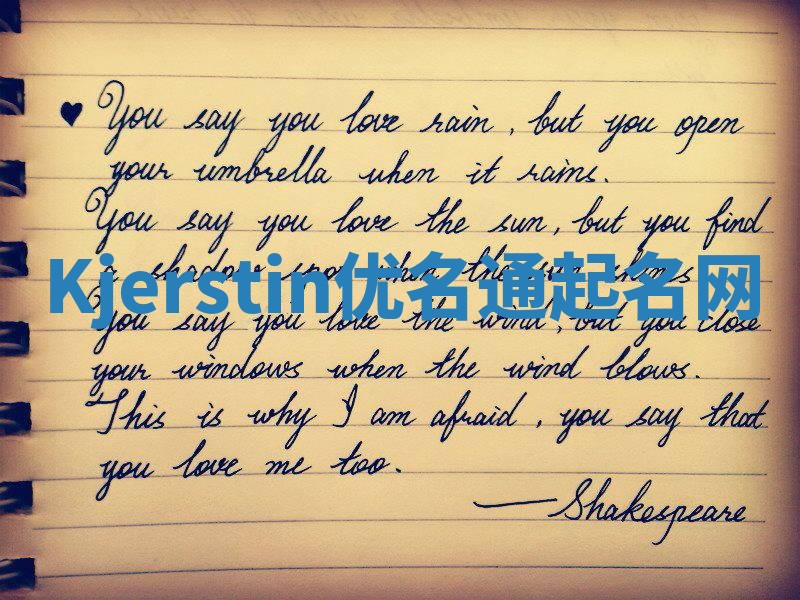 ♥ You say you love rain, but you open
your umbrella when it rains.
You say you love the sun, but you find
a shadow spot when the sun shines
Kjerstin优名通起名网
You say you love the wind, but you close
your windows when the wind blows.
This is why I am afraid, you say that
you love me too.
—Shakespeare